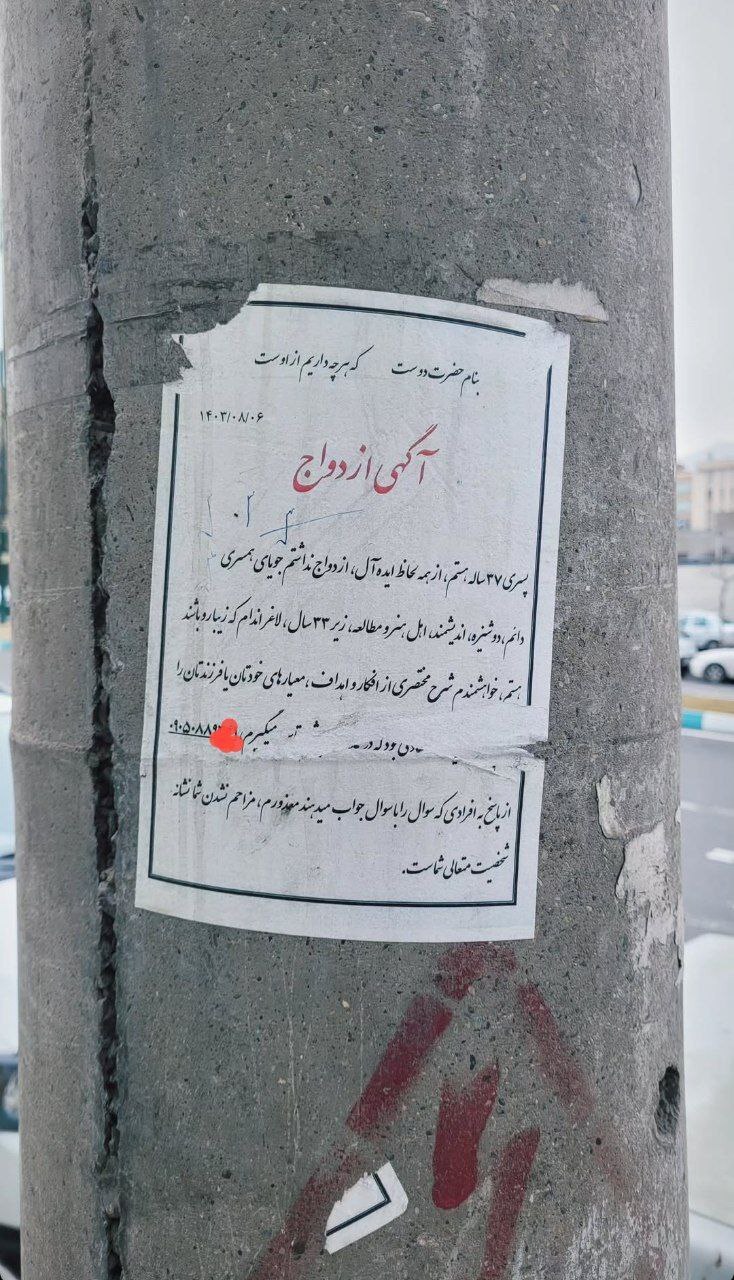 بنام حضرت دوست که هرچه داریم از اوست
۱۴۰۳/۰۸/۰۶
آگهی ازدواج
پسری ۳۷ ساله هستم، از همه لحاظ ایده آل، ازدواج نداشتم جویای همسری
دائم، دوشیزه، اندیشمند، اهل هنر و مطالعه، زیر ۳۳ سال، لاغر اندام که زیبا رو باشند
هستم، خواهشمندم شرح مختصری از افکار و اهداف، معیارهای خودتان یا فرزندتان را
میگیرم، ۰۹۰۵۰۸۸۹
از پاسخ به افرادی که سوال را با سوال جواب میدهند معذورم، مزاحم نشدن شما نشانه
شخصیت متعالی شماست.